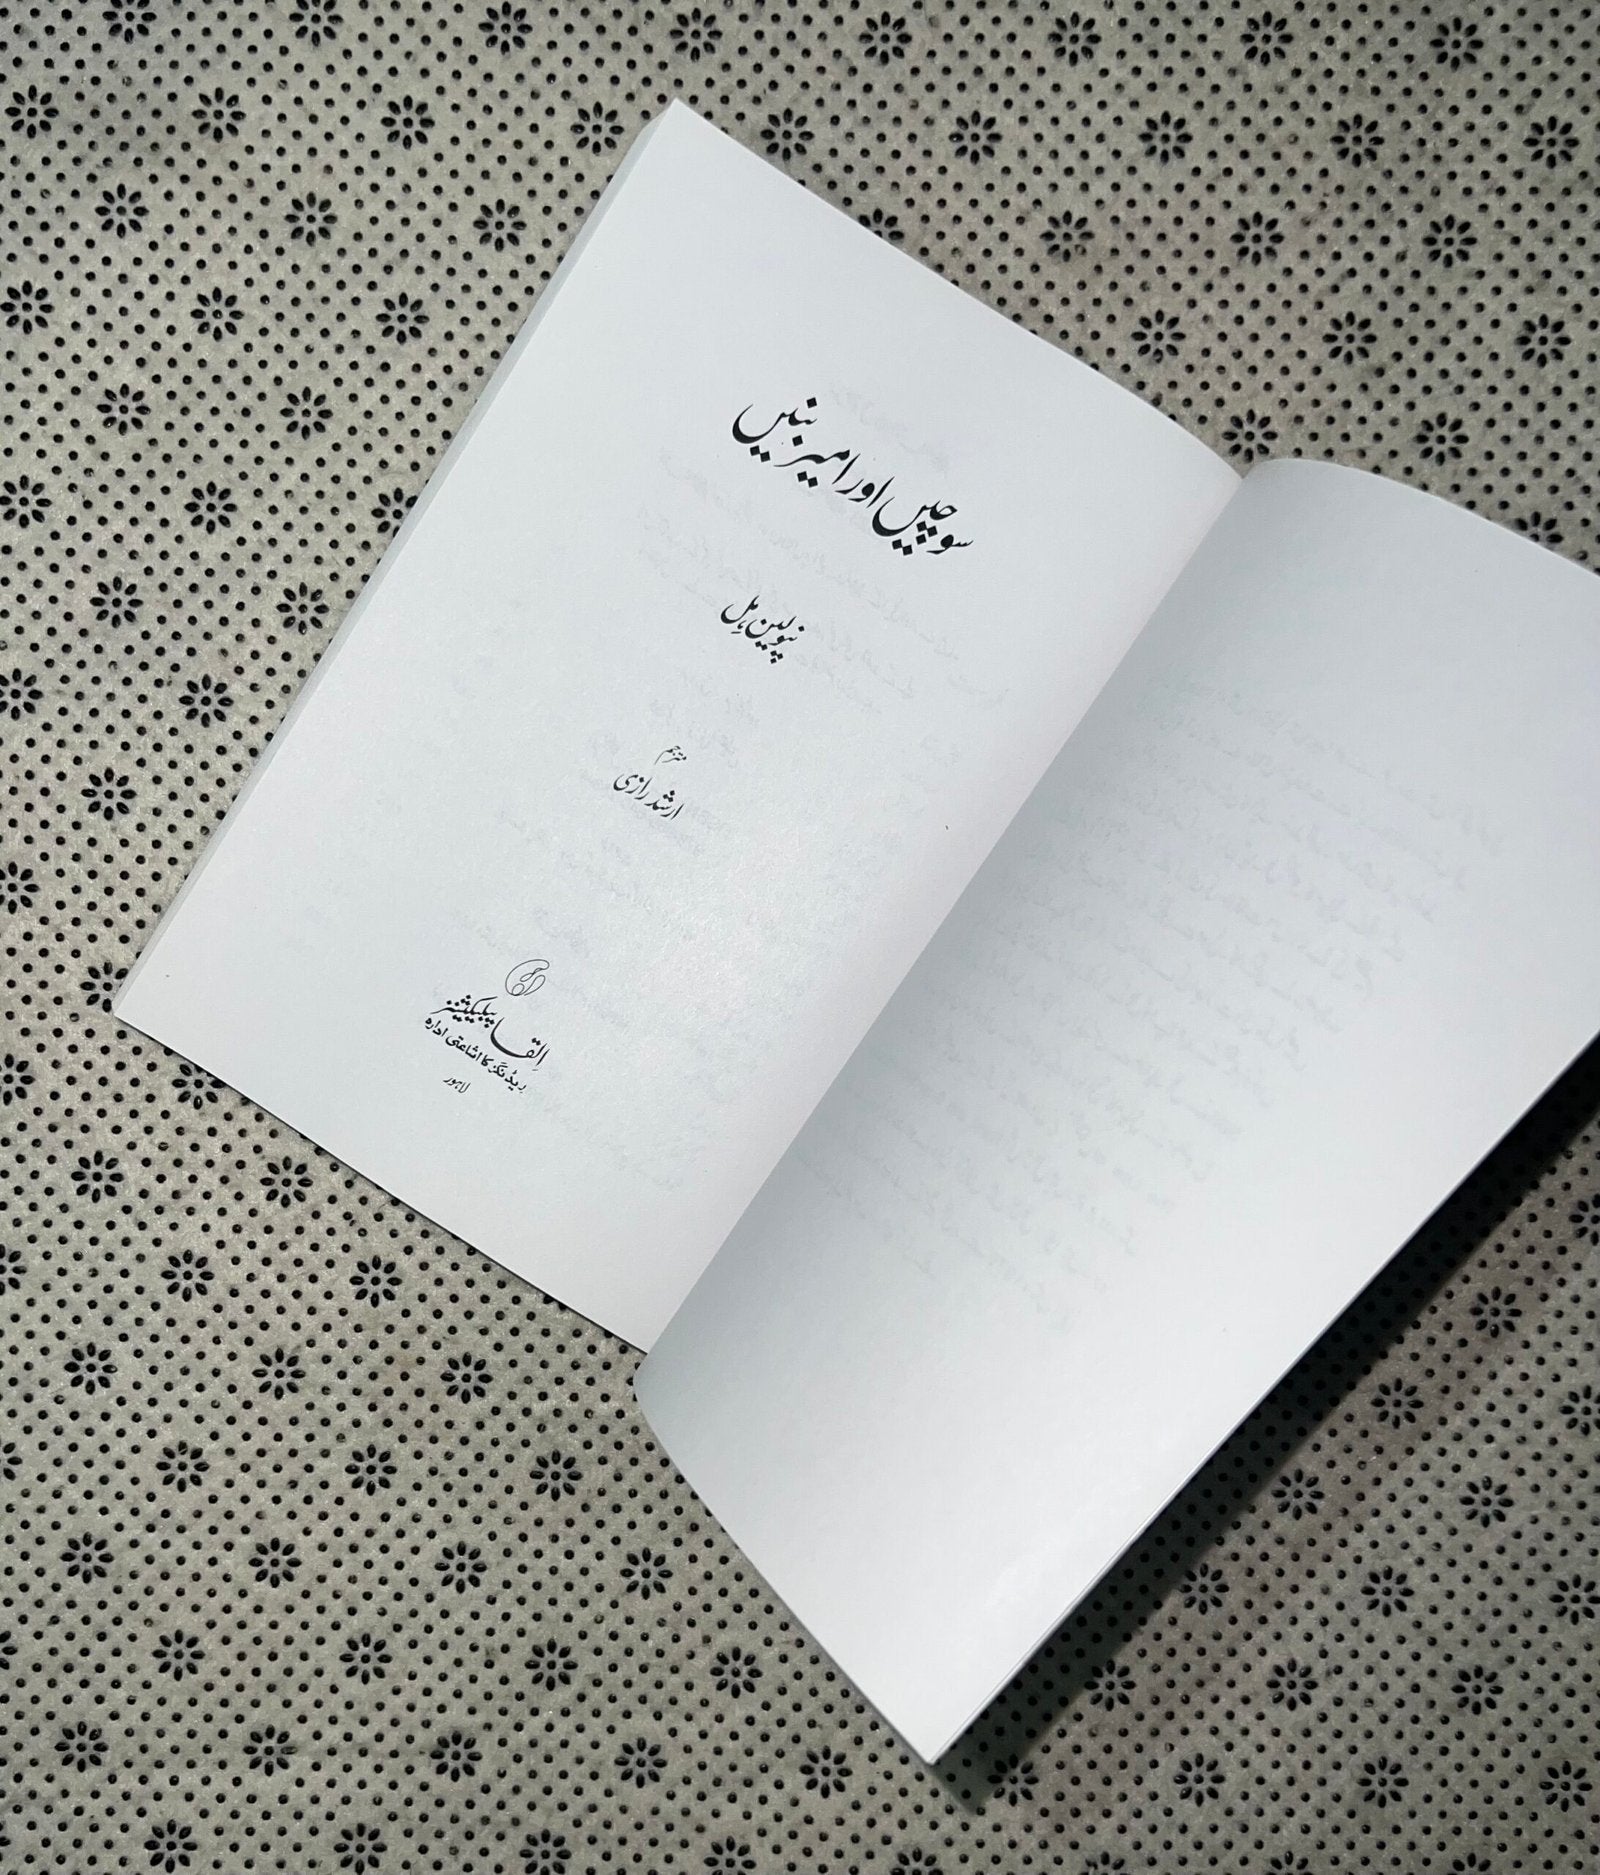 سوچیں اور امیر بنیں
نپولین ہِل
مترجم
ارشد رازی
اِلقا پبلیکیشنز
ریڈنگز کا اشاعتی ادارہ
لاہور